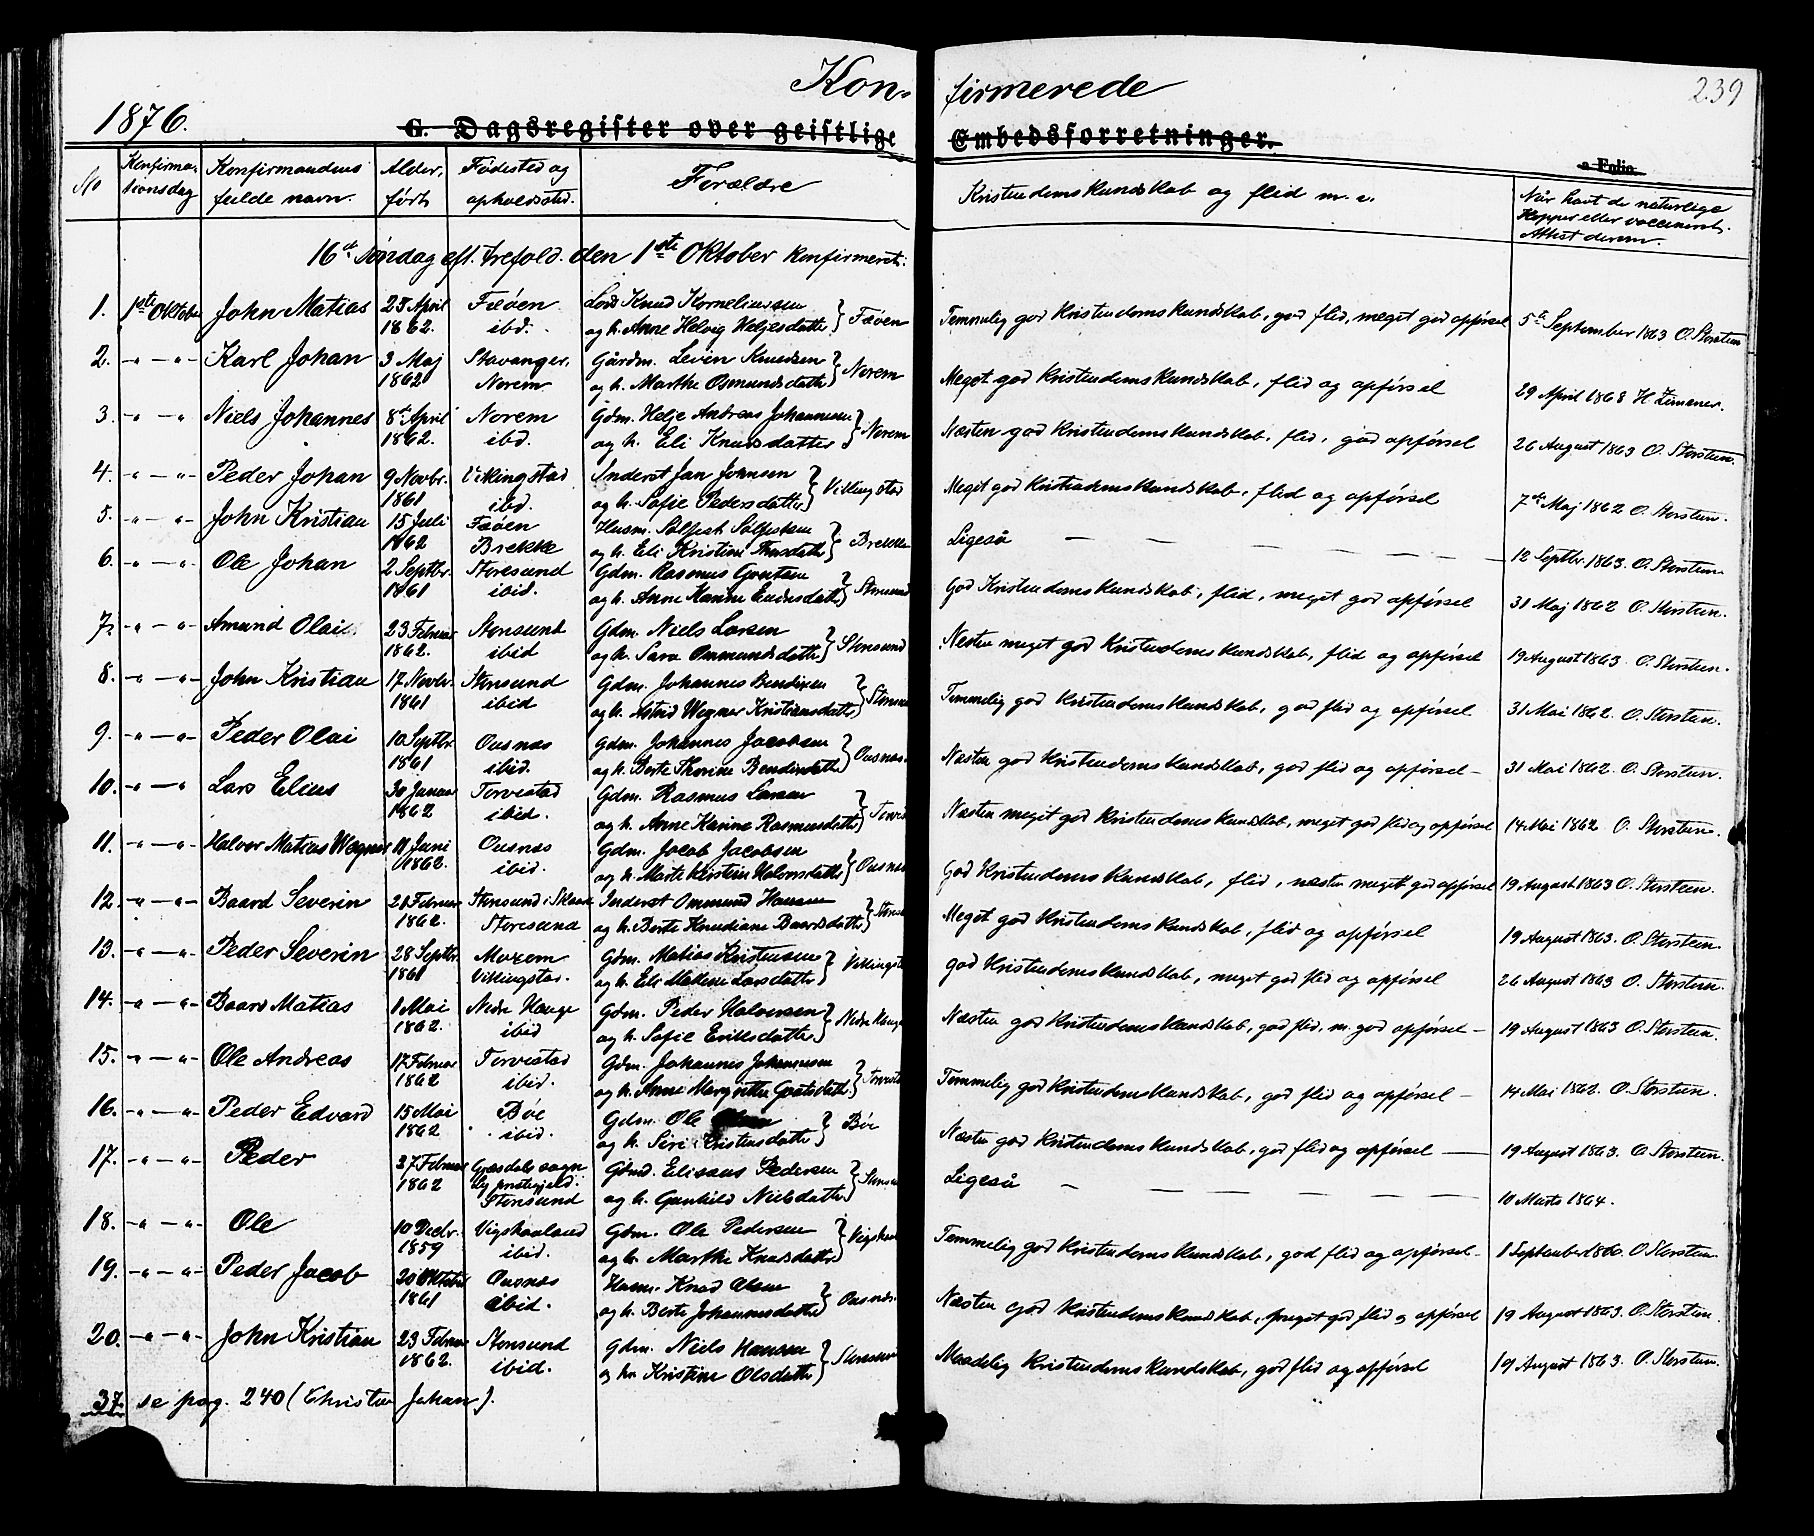 Kon- firmerede
239
1876.
G. Dagsregister over geistlige Embedsforretninger.
a Folio
No
Konfirma- tionsdag
Konfirmandens fulde navn.
Alder, født
Fødested og opholdssted.
Forældre
Kristendomskundskab og flid m. v.
Når havt de naturlige Kopper eller vaccineret. Attest derom.
16de Søndag eft. trefold. den 1ste Oktober konfirmeret:
1. 1ste Oktober John Matias 25 April 1862. Fæøen ibd. Knud Korneliussen og h. Anne Helvig Heljesdatter } Fæøen Temmelig god Kristendomskundskab, god flid, meget god opførsel 5te September 1863 O. Storsteen
2. -"- -"- Karl Johan 3 Maj 1862 Stavanger, Norem Gårdm. Knudsen og h. Marthe Osmundsdatter } Norem Meget god Kristendomskundskab, flid og opførsel 29 April 1868 H.
3. -"- -"- Niels Johannes 8de April 1862. Norem ibd. Gdm. Helje Andreas Johannesen og h. Eli Knudsdatter } Norem Næsten god Kristendomskundskab, flid, god opførsel 26 August 1863 O. Storsteen.
4. -"- -"- Peder Johan 9 Novbr. 1861 Vikingstad ibd. Inderst Jan Johnsen og h. Sofie Pedersdatter } Vikingstad Meget god Kristendomskundskab, flid og opførsel 7de Maj 1862 O. Storsteen.
5. -"- -"- John Kristian 15 Juli 1862 Fæøen Brekke Husm. og h. Eli Kristine } Brekke Ligeså 12 Septbr. 1863. O. Storsteen
6. -"- -"- Ole Johan 2 Septbr. 1861 Storesund ibid. Gdm. Rasmus og h. Anne Karine } Storesund God Kristendomskundskab, flid, meget god opførsel 31 Maj 1862 O. Storsteen.
7. -"- -"- Amund Olai 23 Februar 1862. Storesund ibid Gdm. Niels Larsen og h. Sara Ommundsdatter } Storesund Næsten meget god Kristendomskundskab, flid og opførsel 19 August 1863. O. Storsteen.
8. -"- -"- John Kristian 17 Novbr. 1861 Storesund ibid Gdm. Johannes Bendixen og h. Astrid Wegner Kristiansdatter } Storesund Temmelig god Kristendomskundskab, god flid og opførsel 31 Mai 1862. O. Storsteen.
9. -"- -"- Peder Olai 10 Septbr. 1861 Ousnæs ibid. Gdm. Johannes Jacobsen og h. Berte Thorine Bendixdatter } Ousnæs. Næsten god Kristendomskundskab, god flid og opførsel - 31 Mai 1862. O. Storsteen.
10. -"- -"- Lars Elius 30 Januar 1862 Torvestad ibid. Gdm. Rasmus Larsen og h. Anne Karine Rasmusdatter } Næsten meget god Kristendomskundskab, meget god flid og opførsel 14 Mai 1862 O. Storsteen.
11. -"- -"- Halvor Matias Wegner Juni 1862. Ousnæs ibid. Gdm. Jacob Jacobsen og h. Marte Kirstine Halvorsdatter } Ousnæs God Kristendomskundskab, flid, næsten meget god opførsel 19 August 1863 O. Storsteen.
12. -"- -"- Baard Severin Februar 1862. Storesund i Skaare Storesund Inderst Ommund Hansen og h. Berte Knudiane Baardsdatter } Meget god Kristendomskundskab, flid og opførsel 19 August 1863. O. Storsteen.
13. -"- -"- Peder Severin 28 Septbr. 1861 Vikingstad. Gdm. Matias Kristensen og h. Eli Malene Larsdatter } God Kristendomskundskab, meget god flid og opførsel 26 August 1863 O. Storsteen.
14. -"- -"- Baard Matias 1 Mai 1862. Nedre Hauge ibid Gdm. Peder Halvorsen og h. Sofie Eriksdatter } Nedre Hauge Næsten god Kristendomskundskab, god flid, m. god opførsel - 19 August 1863 O. Storsteen.
15. -"- -"- Ole Andreas 17 Februar 1862 Torvestad ibid. Gdm. Johannes Johannesen og h. Anne Margrethe } Temmelig god Kristendomskundskab, god flid og opførsel - 14 Mai 1862. O. Storsteen.
16. -"- -"- Peder Edvard 15 Mai 1862 Bøe ibid. Gdm. Ole og h. Siri Kristensdatter } Bøe Næsten god Kristendomskundskab, god flid og opførsel - 19 August 1863. O. Storsteen.
17. -"- -"- Peder 27 Februar 1862 sogn præstegjeld. Storesund Gbmd. Elisæus Pedersen og h. Gunhild Nielsdatter } Ligeså 10 Marts 1864.
18. -"- -"- Ole 10 Decbr. 1859 Vigskaaland ibid. Gdm. Ole Pedersen og h. Marthe Knudsdatter } Temmelig god Kristendomskundskab, god flid og opførsel - 1 September 1860. O Storsteen
19. -"- -"- Peder Jacob 20 Oktober 1861 Ousnæs ibid. Husm. Knud Olsen og h. Berte Johannesdatter } Ousnæs. Næsten god Kristendomskundskab, meget god flid og opførsel 19 August 1863. O. Storsteen.
20. -"- -"- John Kristian 23 Februar 1862. Storesund ibid. Gdm. Niels Hansen og h. Kristine Olsdatter } Maadelig Kristendomskundskab, god flid og opførsel 19 August 1863. O. Storsteen.
37. se pag. 240 (Christen Johan).